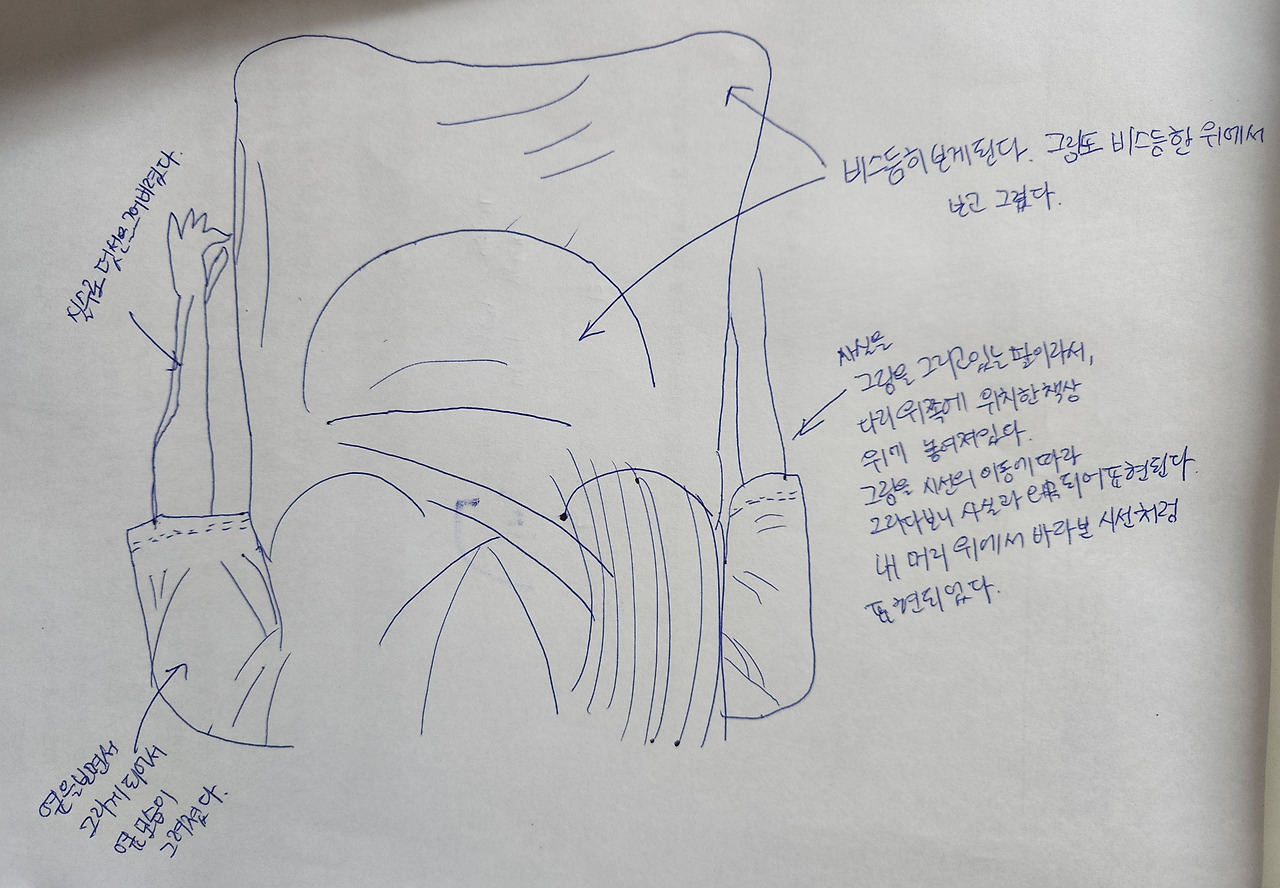 실수로 덧선으로 그어버렸다.
비스듬히 보게된다. 그림도 비스듬한 위에서
보고 그렸다.
사실은
그림을 그리고있는 팔이라서,
다리 위쪽에 위치한 책상
위에 놓여져있다.
그림을 시선의 이동에 따라
그리다보니 사실과 되어 표현된다.
내 머리 위에서 바라본 시선처럼
표현되었다.
옆을보면서
그리게 되어서
옆 모습이
그려졌다.